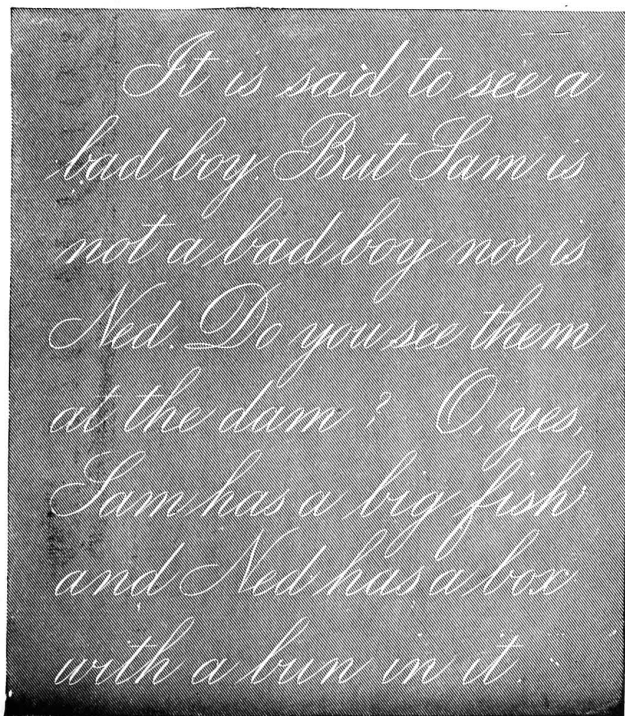 It is sad to see a
bad boy. But Sam is
not a bad boy nor is
Ned. Do you see them
at the dam? O, yes,
Sam has a big fish
and Ned has a box
with a bun in it.